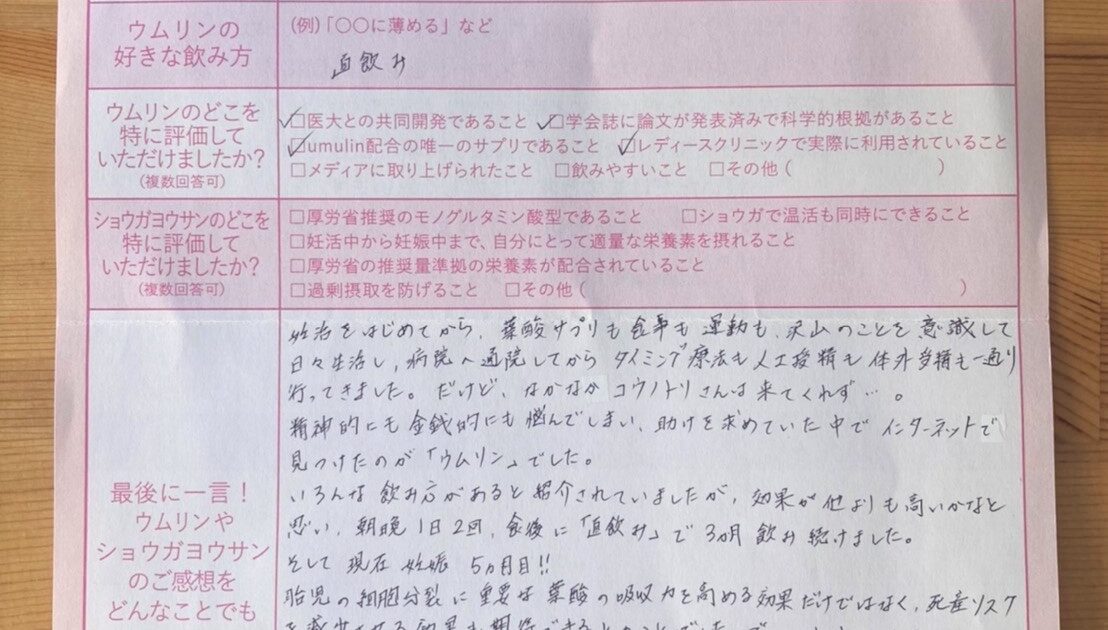 ウムリンの
好きな飲み方
(例)「〇〇に薄める」など
直飲み
ウムリンのどこを
特に評価して
いただけましたか?
(複数回答可)
□医大との共同開発であること □学会誌に論文が発表済みで科学的根拠があること
□umulin配合の唯一のサプリであること □レディースクリニックで実際に利用されていること
□メディアに取り上げられたこと □飲みやすいこと □その他( )
ショウガヨウサンのどこを
特に評価して
いただけましたか?
(複数回答可)
□厚労省推奨のモノグルタミン酸型であること □ショウガで温活も同時にできること
□妊活中から妊娠中まで、自分にとって適量な栄養素を摂れること
□厚労省の推奨量準拠の栄養素が配合されていること
□過剰摂取を防げること □その他( )
最後に一言!
ウムリンや
ショウガヨウサン
のご感想を
どんなことでも
妊活をはじめてから、葉酸サプリも食事も運動も、沢山のことを意識して
日々生活し、病院へ通院してからタイミング療法も人工授精も体外受精も一通り
行ってきました。だけど、なかなかコウノトリさんは来てくれず…。
精神的にも金銭的にも悩んでしまい、助けを求めていた中でインターネットで
見つけたのが「ウムリン」でした。
いろんな飲み方があると紹介されていましたが、効果が他よりも高いかなと
思い、朝晩1日2回、食後に「直飲み」で3ヵ月飲み続けました。
そして現在妊娠5ヵ月目!!
胎児の細胞分裂に重要な葉酸の吸収力を高める効果だけではなく、死産リスク
を減少させる効果も期待できるとのことでした